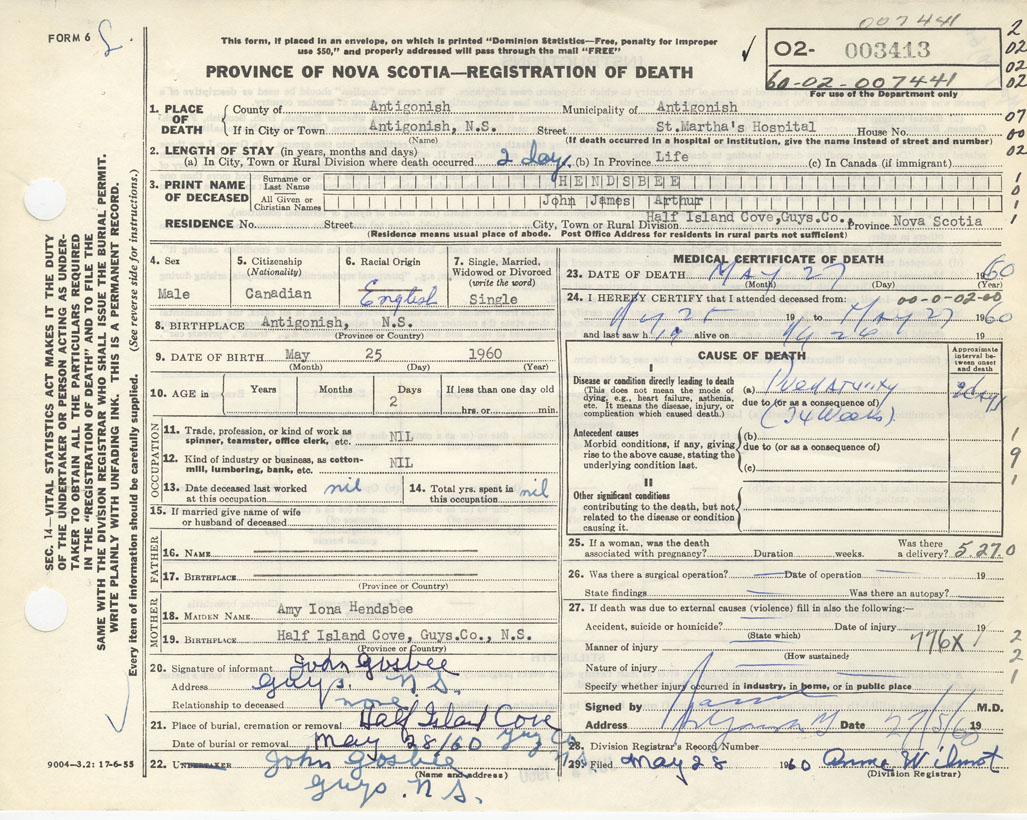 007441
FORM 6
This form, if placed in an envelope, on which is printed "Dominion Statistics—Free, penalty for improper
use $50," and properly addressed will pass through the mail "FREE"
02- 003413
60-02-007441
For use of the Department only
PROVINCE OF NOVA SCOTIA—REGISTRATION OF DEATH
1. PLACE OF DEATH
County of Antigonish Municipality of Antigonish
If in City or Town Antigonish, N.S. Street St.Martha's Hospital House No.
(Name) (If death occurred in a hospital or institution, give the name instead of street and number)
2. LENGTH OF STAY (in years, months and days)
(a) In City, Town or Rural Division where death occurred 2 days (b) In Province Life (c) In Canada (if immigrant)
3. PRINT NAME OF DECEASED
Surname or Last Name HENDSBEE
All Given or Christian Names John James Arthur
RESIDENCE No. Street City, Town or Rural Division Half Island Cove,Guys.Co., Province Nova Scotia
(Residence means usual place of abode. Post Office Address for residents in rural parts not sufficient)
4. Sex
Male
5. Citizenship
(Nationality)
Canadian
6. Racial Origin
English
7. Single, Married,
Widowed or Divorced
(write the word)
Single
8. BIRTHPLACE Antigonish, N.S.
(Province or Country)
9. DATE OF BIRTH May 25 1960
(Month) (Day) (Year)
10. AGE in Years Months Days If less than one day old
2 hrs. or min.
OCCUPATION
11. Trade, profession, or kind of work as
spinner, teamster, office clerk, etc. NIL
12. Kind of industry or business, as cotton-
mill, lumbering, bank, etc. NIL
13. Date deceased last worked
at this occupation nil
14. Total yrs. spent in
this occupation nil
15. If married give name of wife
or husband of deceased
FATHER
16. NAME
17. BIRTHPLACE
(Province or Country)
MOTHER
18. MAIDEN NAME Amy Iona Hendsbee
19. BIRTHPLACE Half Island Cove, Guys.Co., N.S.
(Province or Country)
20. Signature of informant John Gosbee
Address Guys. N.S.
Relationship to deceased none
21. Place of burial, cremation or removal Half Island Cove
Guy Co
Date of burial or removal May 28/60
22. UNDERTAKER John Gosbee
(Name and address)
Guys. N.S.
MEDICAL CERTIFICATE OF DEATH
23. DATE OF DEATH May 27 1960
(Month) (Day) (Year)
24. I HEREBY CERTIFY that I attended deceased from: 00-0-02-00
May 25 19 to May 27 1960
and last saw h alive on May 26 19
CAUSE OF DEATH
Approximate
interval be-
tween onset
and death
I
Disease or condition directly leading to death
(This does not mean the mode of
dying, e.g., heart failure, asthenia,
etc. It means the disease, injury, or
complication which caused death.)
(a) Prematurity 2 days
due to (or as a consequence of)
(24 Weeks)
Antecedent causes
Morbid conditions, if any, giving
rise to the above cause, stating the
underlying condition last.
(b)
due to (or as a consequence of)
(c)
II
Other significant conditions
contributing to the death, but not
related to the disease or condition
causing it.
25. If a woman, was the death
associated with pregnancy? Duration weeks. Was there
a delivery? 5.27.0
26. Was there a surgical operation? Date of operation 19
State findings Was there an autopsy?
27. If death was due to external causes (violence) fill in also the following:—
Accident, suicide or homicide? Date of injury 19
(State which)
Manner of injury 776X
(How sustained)
Nature of injury
Specify whether injury occurred in industry, in home, or in public place
Signed by M.D.
Address Date 27/5/60 19
28. Division Registrar's Record Number
29. Filed May 28 1960 Anna Wilmot
(Division Registrar)
SEC. 14—VITAL STATISTICS ACT MAKES IT THE DUTY
OF THE UNDERTAKER OR PERSON ACTING AS UNDER-
TAKER TO OBTAIN ALL THE PARTICULARS REQUIRED
IN THE "REGISTRATION OF DEATH" AND TO FILE THE
SAME WITH THE DIVISION REGISTRAR WHO SHALL ISSUE THE BURIAL PERMIT.
WRITE PLAINLY WITH UNFADING INK. THIS IS A PERMANENT RECORD.
Every item of information should be carefully supplied. (See reverse side for instructions.)
9004—3.2: 17-6-55
2
02
02
02
07
00
02
1
0
1
1
1
9
1
2
2
1